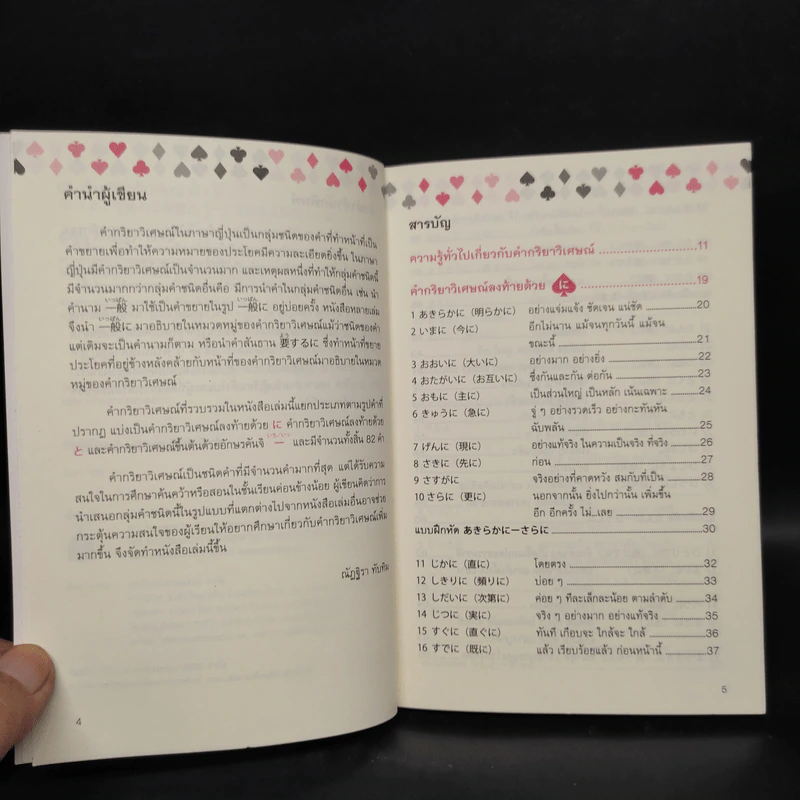 คำนำผู้เขียน
คำกริยาวิเศษณ์ในภาษาญี่ปุ่นเป็นกลุ่มชนิดของคำที่ทำหน้าที่เป็น
คำขยายเพื่อทำให้ความหมายของประโยคมีความละเอียดยิ่งขึ้น ในภาษา
ญี่ปุ่นมีคำกริยาวิเศษณ์เป็นจำนวนมาก และเหตุผลหนึ่งที่ทำให้กลุ่มคำชนิดนี้
มีจำนวนมากกว่ากลุ่มคำชนิดอื่นคือ มีการนำคำในกลุ่มคำชนิดอื่น เช่น นำ
คำนาม 一般 มาใช้เป็นคำขยายในรูป 一般に อยู่บ่อยครั้ง หนังสือหลายเล่ม
จึงนำ 一般に มาอธิบายในหมวดหมู่ของคำกริยาวิเศษณ์แม้ว่าชนิดของคำ
แต่เดิมจะเป็นคำนามก็ตาม หรือนำคำสันธาน 要するに ซึ่งทำหน้าที่ขยาย
ประโยคที่อยู่ข้างหลังคล้ายกับหน้าที่ของคำกริยาวิเศษณ์มาอธิบายในหมวด
หมู่ของคำกริยาวิเศษณ์
คำกริยาวิเศษณ์ที่รวบรวมในหนังสือเล่มนี้แยกประเภทตามรูปคำที่
ปรากฏ แบ่งเป็นคำกริยาวิเศษณ์ลงท้ายด้วย に คำกริยาวิเศษณ์ลงท้ายด้วย
と และคำกริยาวิเศษณ์ขึ้นต้นด้วยอักษรคันจิ 一 และมีจำนวนทั้งสิ้น 82 คำ
คำกริยาวิเศษณ์เป็นชนิดคำที่มีจำนวนคำมากที่สุด แต่ได้รับความ
สนใจในการศึกษาค้นคว้าหรือสอนในชั้นเรียนค่อนข้างน้อย ผู้เขียนคิดว่าการ
นำเสนอกลุ่มคำชนิดนี้ในรูปแบบที่แตกต่างไปจากหนังสือเล่มอื่นอาจช่วย
กระตุ้นความสนใจของผู้เรียนให้อยากศึกษาเกี่ยวกับคำกริยาวิเศษณ์เพิ่ม
มากขึ้น จึงจัดทำหนังสือเล่มนี้ขึ้น
ณัฏฐิรา ทับทิม
4
สารบัญ
ความรู้ทั่วไปเกี่ยวกับคำกริยาวิเศษณ์ 11
คำกริยาวิเศษณ์ลงท้ายด้วย に 19
1 あきらかに (明らかに) อย่างแจ่มแจ้ง ชัดเจน แน่ชัด 20
2 いまに (今に) อีกไม่นาน แม้จนทุกวันนี้ แม้จน
ขณะนี้ 21
3 おおいに (大いに) อย่างมาก อย่างยิ่ง 22
4 おたがいに (お互いに) ซึ่งกันและกัน ต่อกัน 23
5 おもに (主に) เป็นส่วนใหญ่ เป็นหลัก เน้นเฉพาะ 24
6 きゅうに (急に) จู่ ๆ อย่างรวดเร็ว อย่างกะทันหัน
ฉับพลัน 25
7 げんに (現に) อย่างแท้จริง ในความเป็นจริง ที่จริง 26
8 さきに (先に) ก่อน 27
9 さすがに จริงอย่างที่คาดหวัง สมกับที่เป็น 28
10 さらに (更に) นอกจากนั้น ยิ่งไปกว่านั้น เพิ่มขึ้น
อีก อีกครั้ง ไม่...เลย 29
แบบฝึกหัด あきらかに－さらに 30
11 じかに (直に) โดยตรง 32
12 しきりに (頻りに) บ่อย ๆ 33
13 しだいに (次第に) ค่อย ๆ ทีละเล็กละน้อย ตามลำดับ 34
14 じつに (実に) จริง ๆ อย่างมาก อย่างแท้จริง 35
15 すぐに (直ぐに) ทันที เกือบจะ ใกล้จะ ใกล้ 36
16 すでに (既に) แล้ว เรียบร้อยแล้ว ก่อนหน้านี้ 37
5